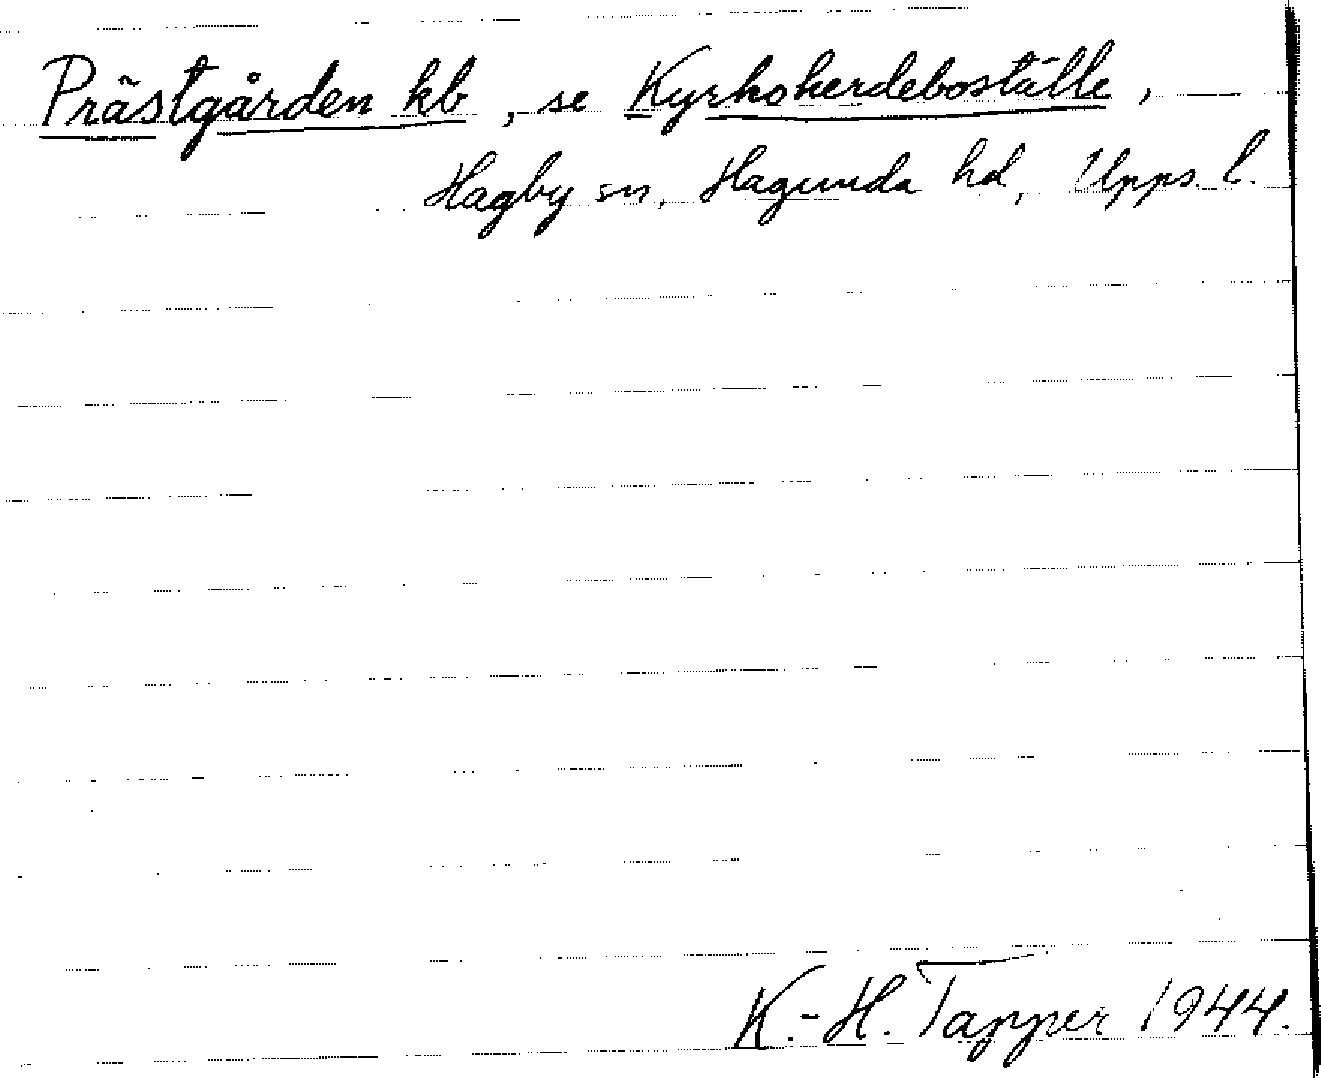 Prästgården kb, se Kyrkoherdeboställe,
Hagby sn, Hagunda hd, Upps. l.
K.-H. Tapper 1944.